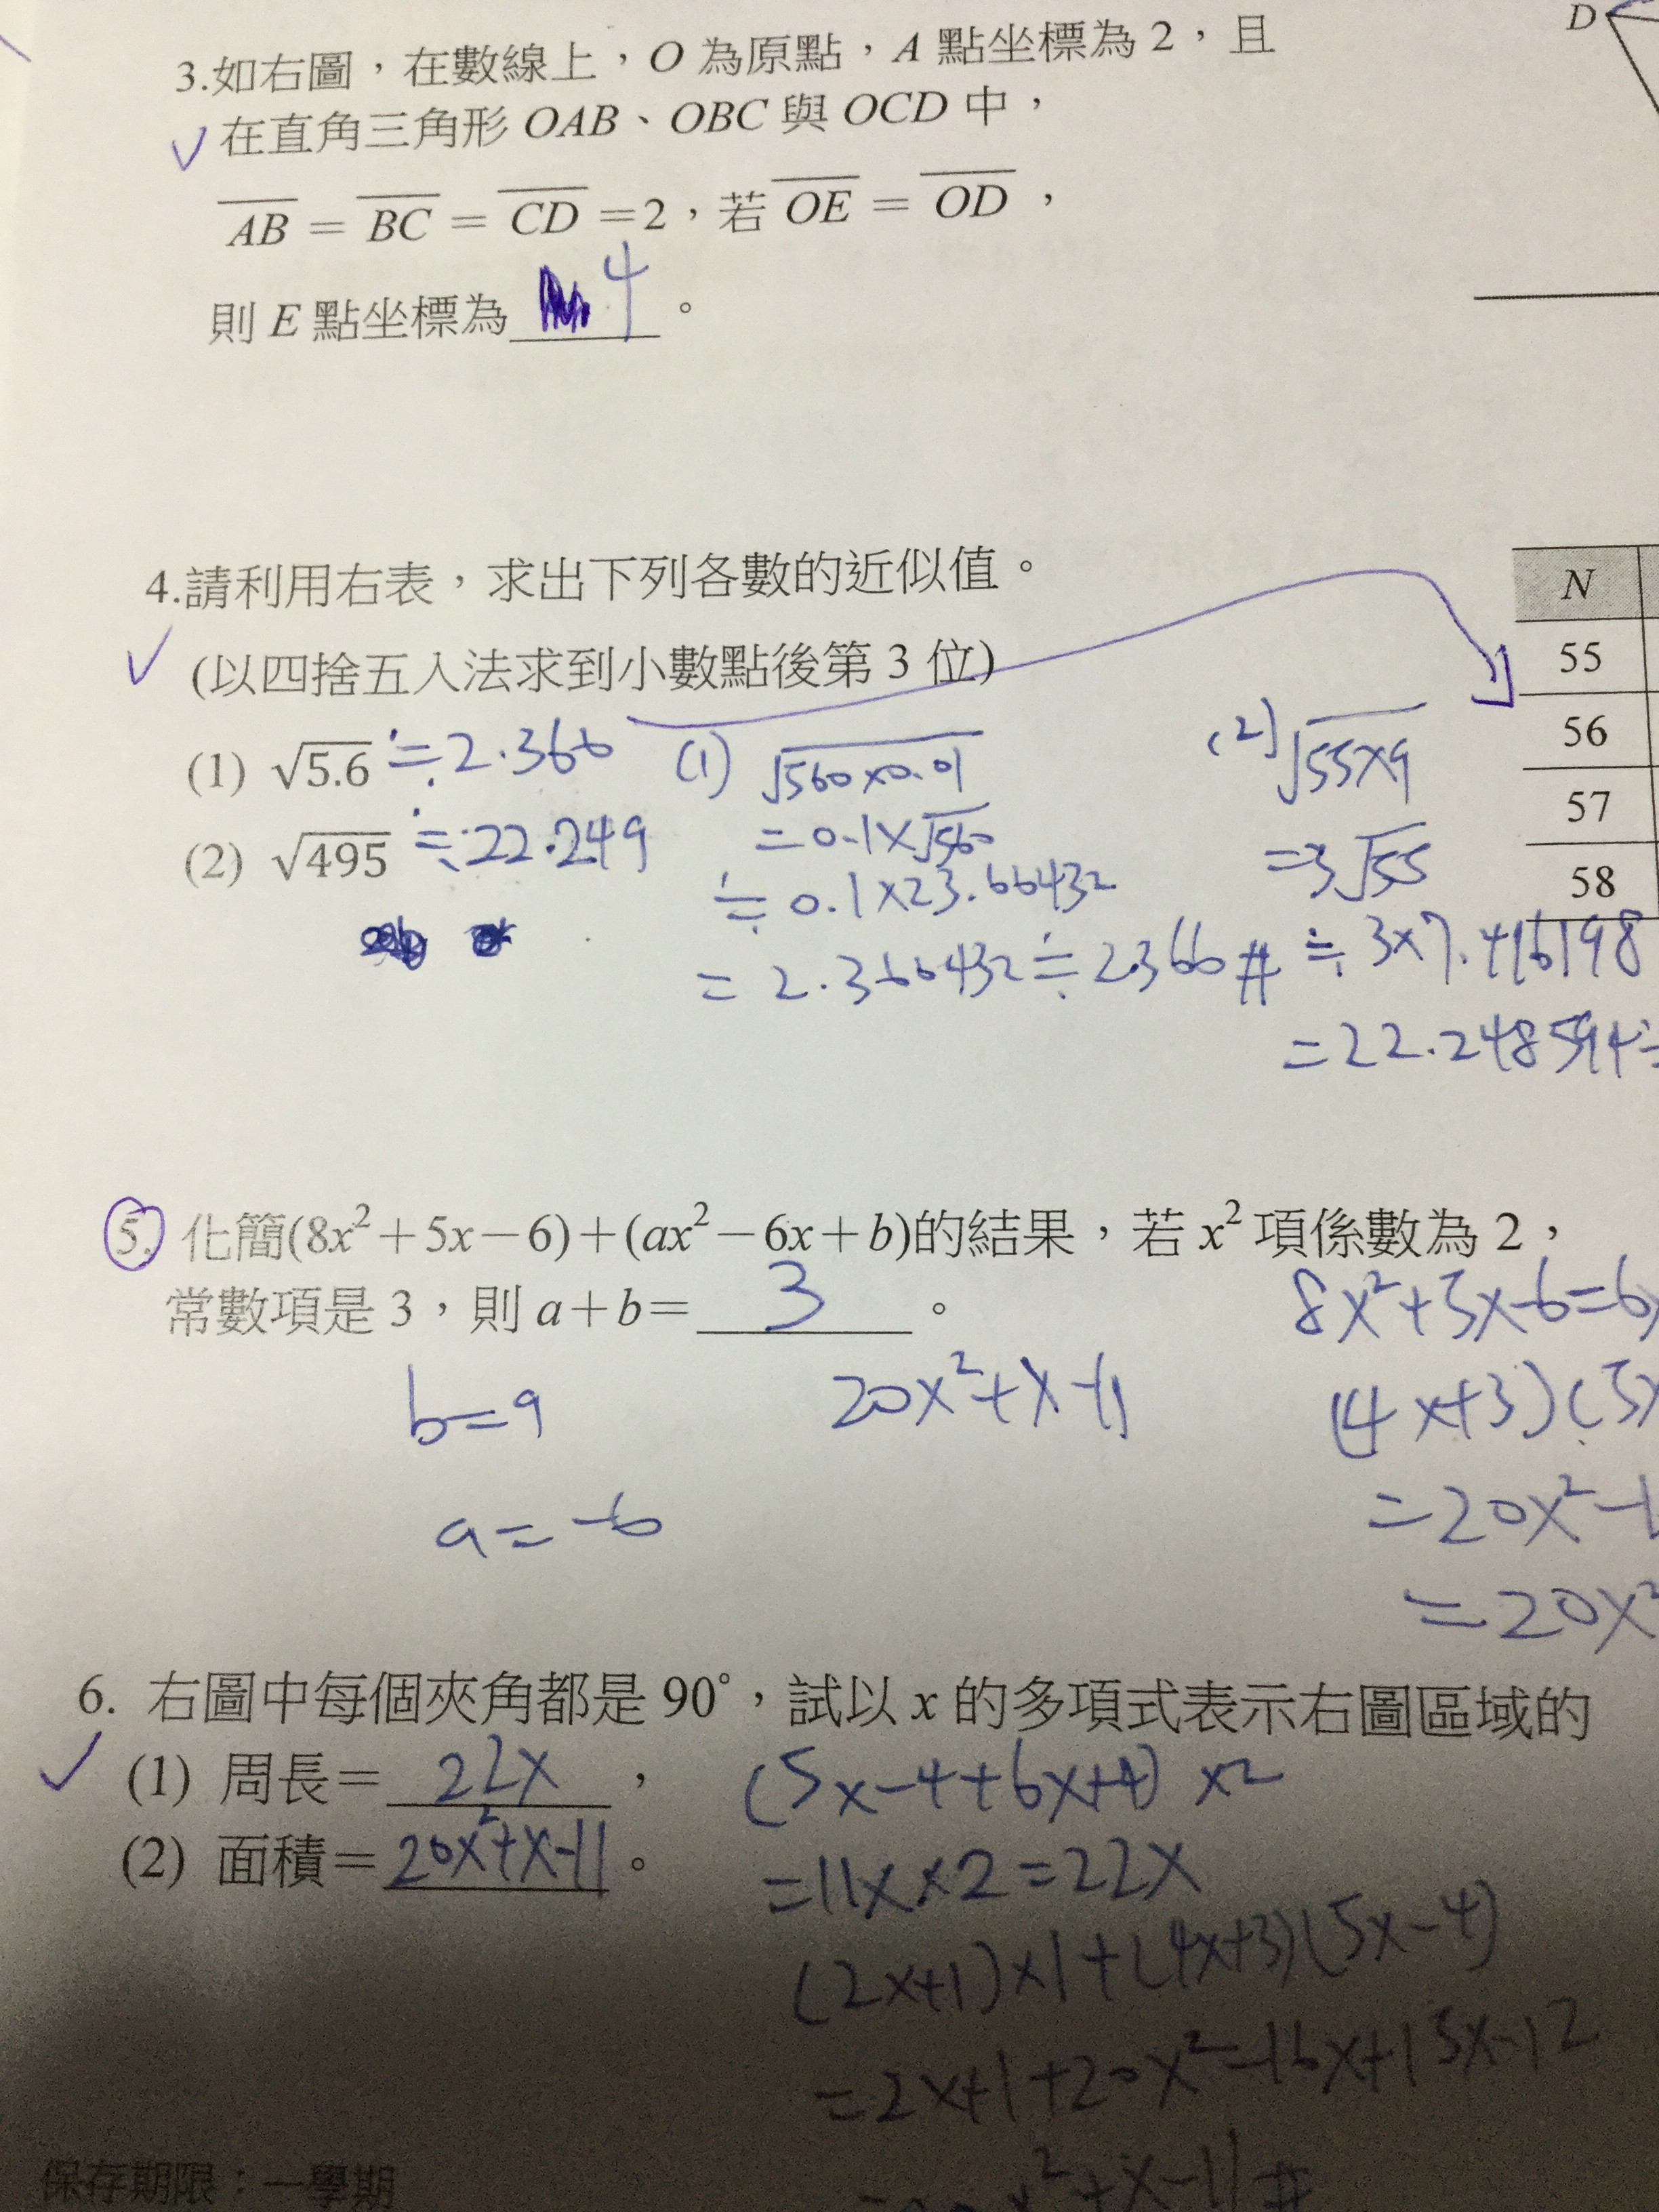 D
3.如右圖，在數線上，O 為原點，A 點坐標為 2，且
在直角三角形 OAB、OBC 與 OCD 中，
AB = BC = CD =2，若 OE = OD，
則 E 點坐標為 4 。
4.請利用右表，求出下列各數的近似值。
(以四捨五入法求到小數點後第 3 位)
(1) √5.6 ≒ 2.366
(2) √495 ≒ 22.249
(1) √560×0.01
= 0.1×√560
≒ 0.1×23.66432
= 2.366432≒2.366#
(2) √55×9
=3√55
≒ 3×7.416198
=22.248594≒
N
55
56
57
58
5. 化簡(8x²+5x−6)+(ax²−6x+b)的結果，若 x² 項係數為 2，
常數項是 3，則 a+b= 3 。
b=9
a=-6
20x²+x-11
8x²+5x-6=6
(4x+3)(5x
=20x²-1
=20x²
6. 右圖中每個夾角都是 90°，試以 x 的多項式表示右圖區域的
(1) 周長= 22x ，
(2) 面積= 20x²+x-11 。
(5x-4+6x+4)×2
=11x×2=22x
(2x+1)×1+(4x+3)(5x-4)
=2x+1+20x²-16x+15x-12
=20x²+x-11#
保存期限：一學期